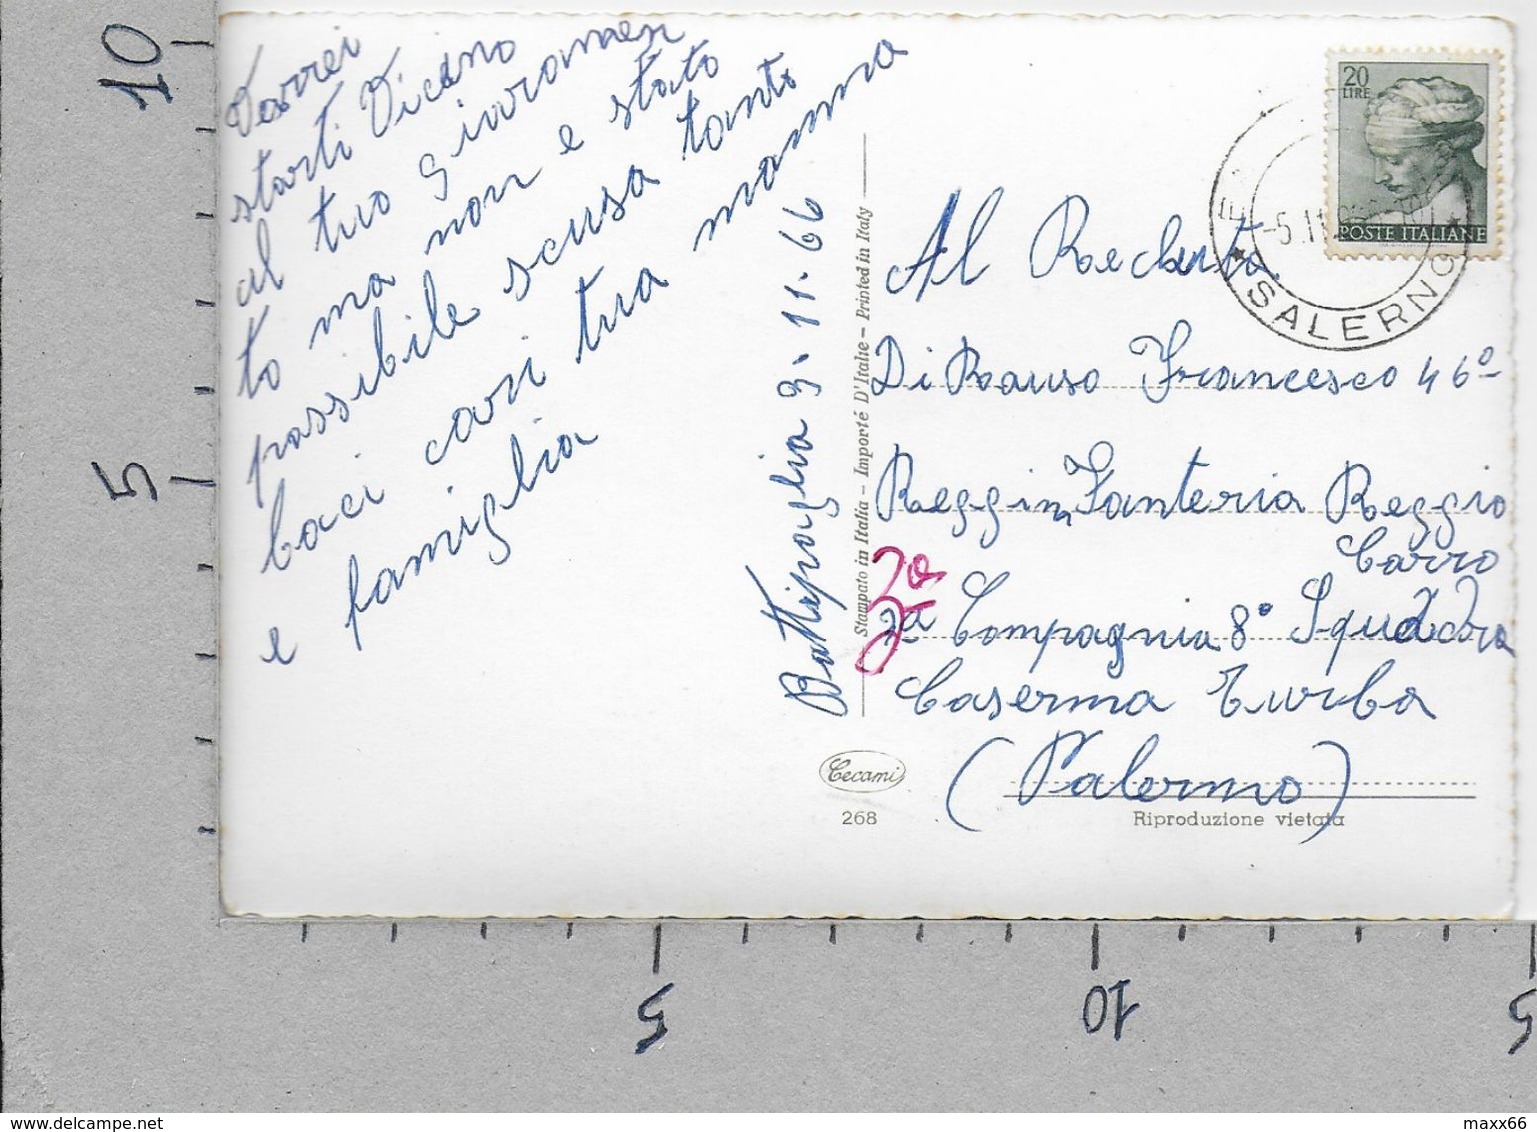 Vorrei
starti Vicino
al tuo giuramen
to ma non e stato
possibile scusa tanto
baci cari tua mamma
e famiglia
Battipaglia 3-11-66
Stampato in Italia - Importé D'Italie - Printed in Italy
20
LIRE
POSTE ITALIANE
-5.11
SALERNO
Al Recluta
Di Rauso Francesco 46°
Regg in Fanteria Reggio
Carro
2a Compagnia 8° Squadra
Caserma Turba
(Palermo)
Cecami
268
Riproduzione vietata
10
5
5
10
5
www.delcampe.net
maxx66